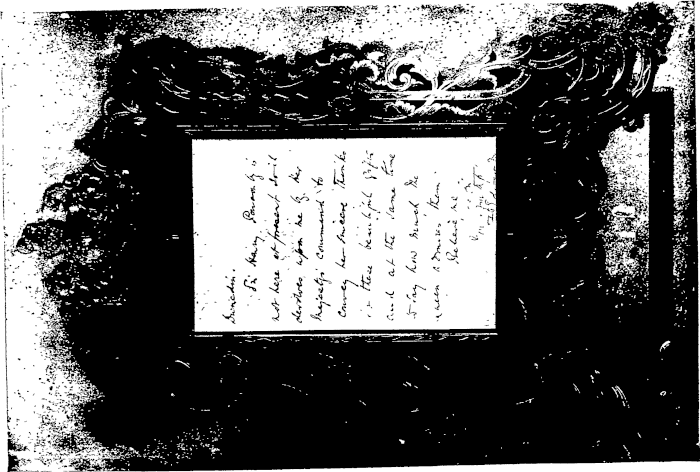 Sir Henry Ponsonby is
not here at present & it
devolves upon me by Her
Majesty's command to
convey her sincere thanks
these beautiful gifts
and at the same time
to say how much the
Queen admires them.
Believe me